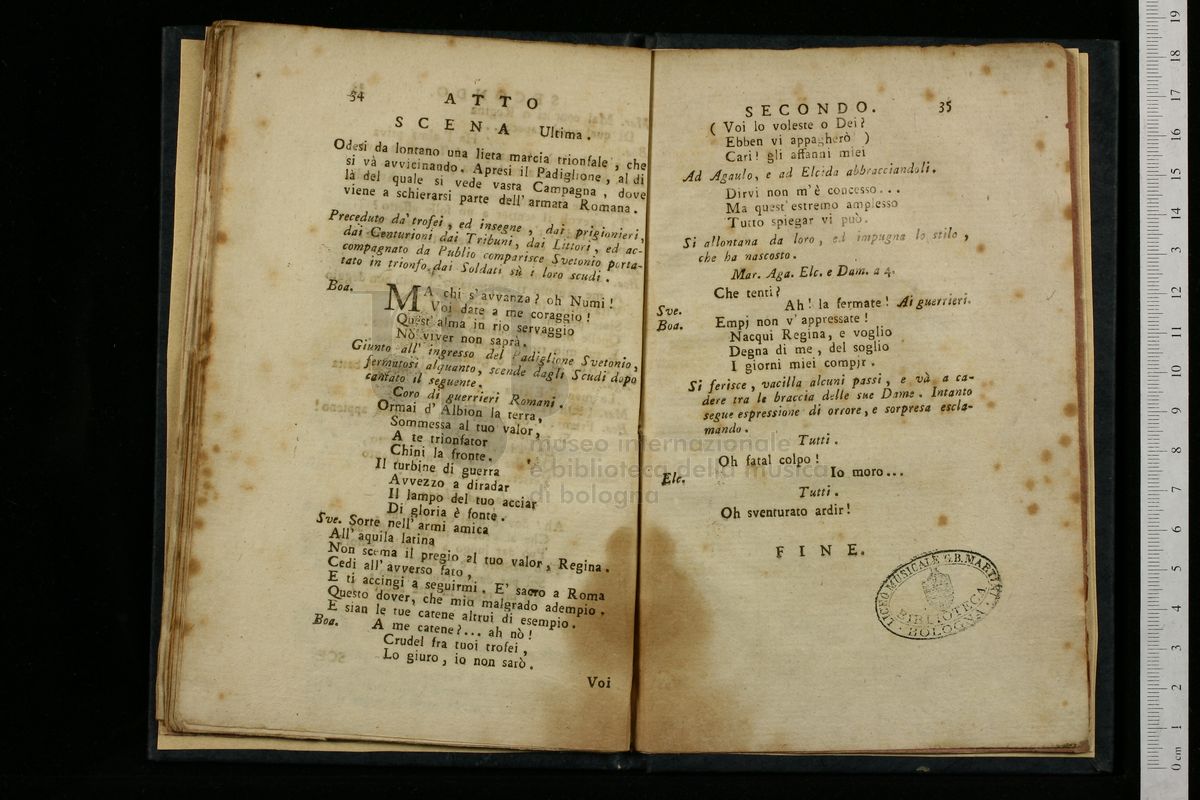 54
ATTO
SCENA Ultima.
Odesi da lontano una lieta marcia trionfale, che
si và avvicinando. Apresi il Padiglione, al di
là del quale si vede vasta Campagna, dove
viene a schierarsi parte dell'armata Romana.
Preceduto da' trofei, ed insegne, dai prigionieri,
dai Centurioni dai Tribuni, dai Littori, ed ac-
compagnato da Publio comparisce Svetonio porta-
tato in trionfo dai Soldati sù i loro scudi.
Boa. MA chi s'avvanza? oh Numi!
Voi date a me coraggio!
Quest'alma in rio servaggio
Nò viver non saprà.
Giunto all' ingresso del Padiglione Svetonio,
fermatosi alquanto, scende dagli Scudi dopo
cantato il seguente.
Coro di guerrieri Romani.
Ormai d' Albion la terra,
Sommessa al tuo valor,
A te trionfator
Chini la fronte.
Il turbine di guerra
Avvezzo a diradar
Il lampo del tuo acciar
Di gloria è fonte.
Sve. Sorte nell' armi amica
All' aquila latina
Non scema il pregio al tuo valor, Regina.
Cedi all' avverso fato,
E ti accingi a seguirmi. E' sacro a Roma
Questo dover, che mio malgrado adempio.
E sian le tue catene altrui di esempio.
Boa. A me catene?... ah nò!
Crudel fra tuoi trofei,
Lo giuro, io non sarò.
Voi
SECONDO. 35
( Voi lo voleste o Dei?
Ebben vi appagherò )
Cari! gli affanni miei
Ad Agaulo, e ad Elcida abbracciandoli.
Dirvi non m'è concesso...
Ma quest' estremo amplesso
Tutto spiegar vi può.
Si allontana da loro, ed impugna lo stilo,
che ha nascosto.
Mar. Aga. Elc. e Dam. a 4.
Che tenti?
Sve. Ah! la fermate! Ai guerrieri.
Boa. Empj non v' appressate!
Nacqui Regina, e voglio
Degna di me, del soglio
I giorni miei compir.
Si ferisce, vacilla alcuni passi, e và a ca-
dere tra le braccia delle sue Dame. Intanto
segue espressione di orrore, e sorpresa escla-
mando.
Tutti.
Oh fatal colpo!
Elc. Io moro...
Tutti.
Oh sventurato ardir!
FINE.
LICEO MUSICALE G.B. MARTINI
BIBLIOTECA
BOLOGNA
museo internazionale
e biblioteca della musica
di bologna
0 cm 1 2 3 4 5 6 7 8 9 10 11 12 13 14 15 16 17 18 19